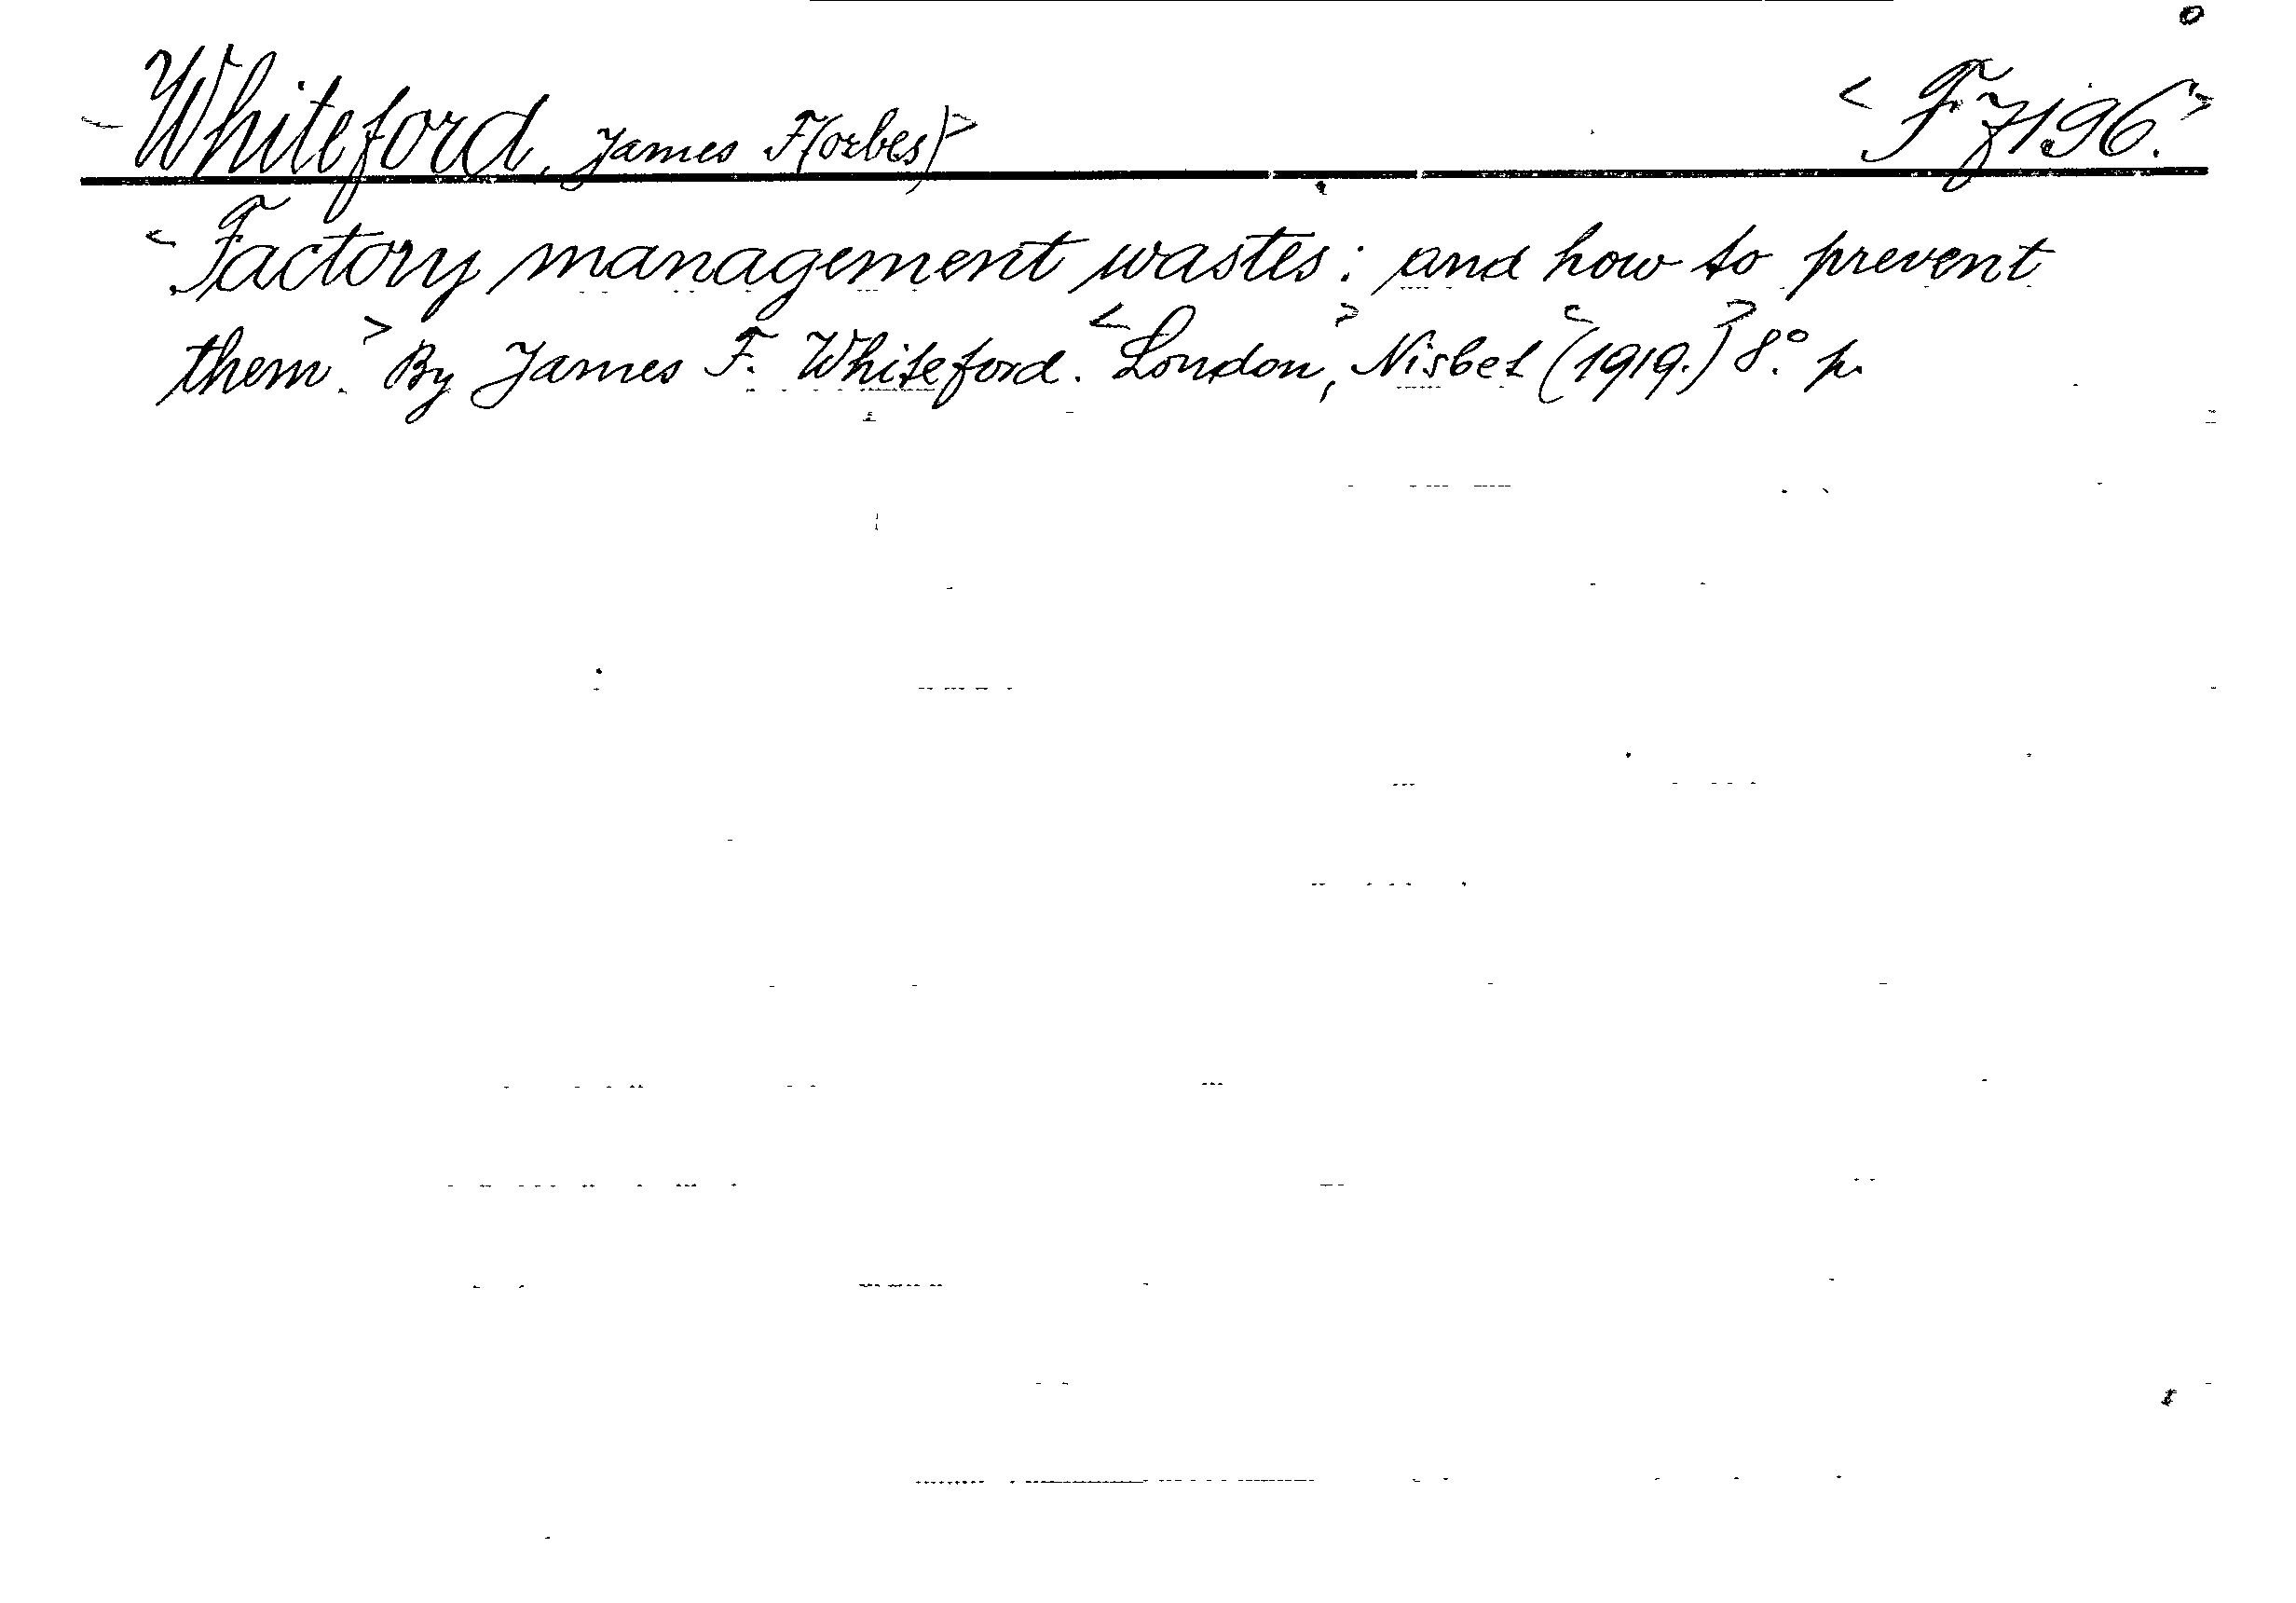 <Whiteford, James F(orbes)> <Fz196.>
<Factory management wastes: and how to prevent
them.> By James F. Whiteford. <London,> Nisbet <(1919.)> 8.° p.